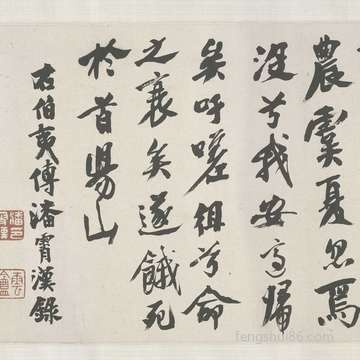 農虞夏忽焉
没兮我安适歸
矣吁嗟徂兮命
之衰矣遂餓死
於首陽山
右伯夷傳潘霄漢錄
fengshui86.com